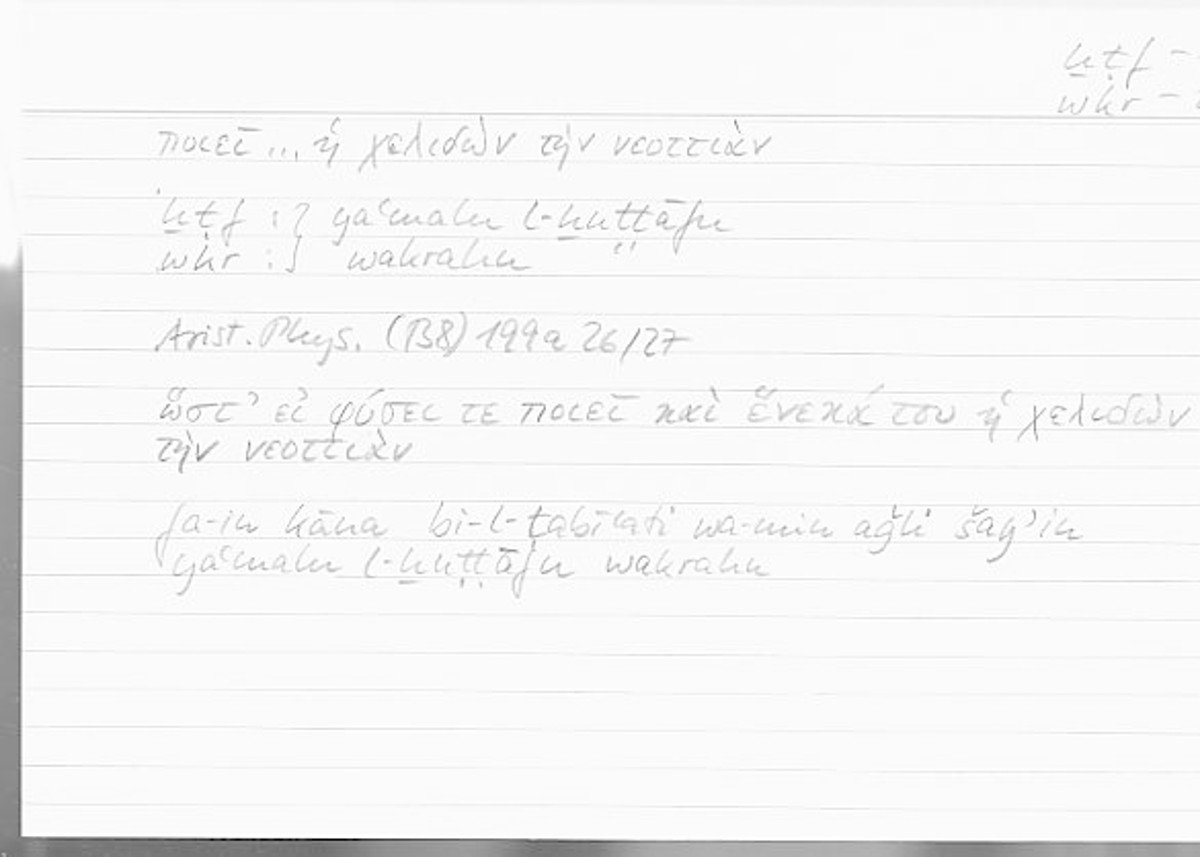 ḫṭf –
wkr –
ποιεῖ ... ἡ χελιδὼν τὴν νεοττιὰν
ḫṭf : } yaʿmalu l-ḫuṭṭāfu
wkr : } wakrahu
Arist. Phys. (B8) 199a 26/27
ὥστ' εἰ φύσει τε ποιεῖ καὶ ἕνεκά του ἡ χελιδὼν
τὴν νεοττιὰν
fa-in kāna bi-l-ṭabīʿati wa-min aǧli šayʾin
yaʿmalu l-ḫuṭṭāfu wakrahu